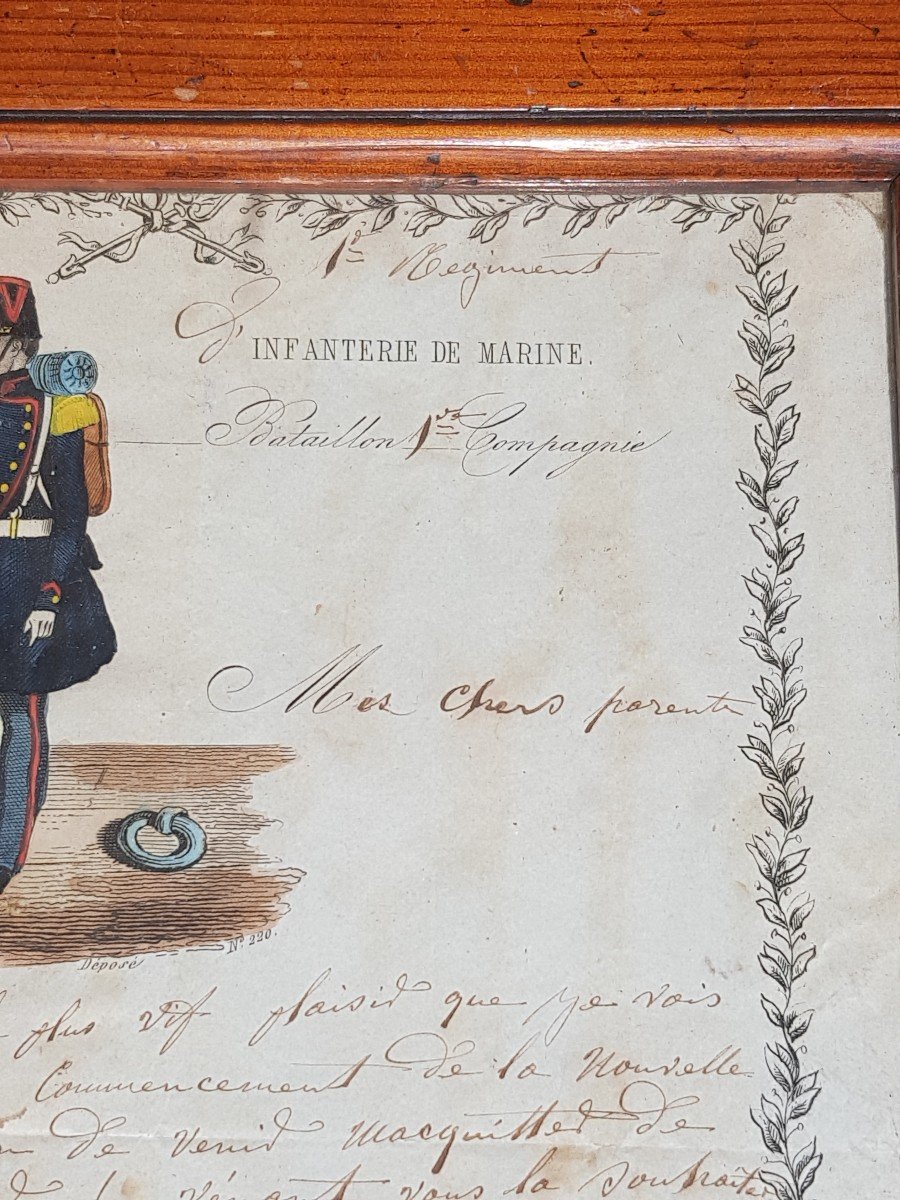 1er Regiment
d'
INFANTERIE DE MARINE.
Bataillon 1re Compagnie
Mes chers parents
Déposé N° 220.
plus vif plaisir que je vois
Commencement de la Nouvelle
de venir macquitter de
vous la souhaite